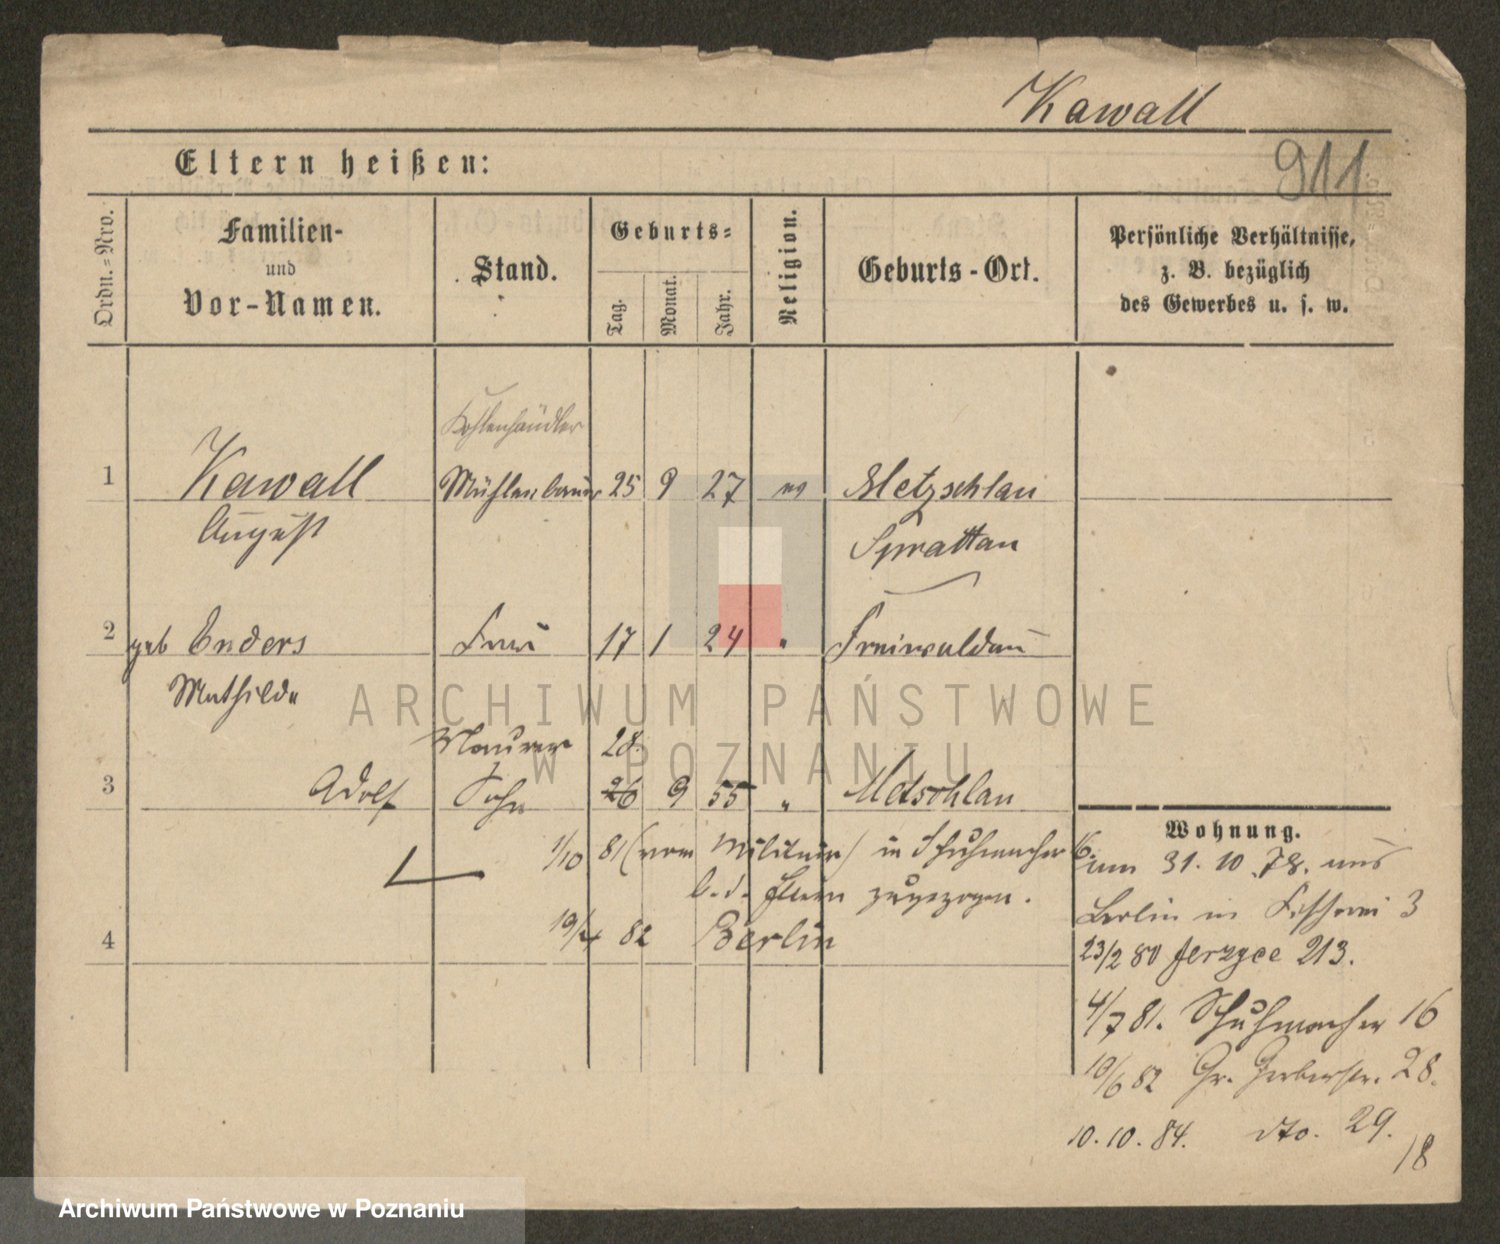 Kawall
911
Eltern heißen:
Ordn.-Nro.
Familien-
und
Vor-Namen.
Stand.
Geburts-
Tag.
Monat.
Jahr.
Religion.
Geburts-Ort.
Persönliche Verhältnisse,
z. B. bezüglich
des Gewerbes u. s. w.
Kohlenhändler
1 Kawall Mühlenbauer 25 9 27 ev Metzschlau
August Sprottau
2 geb Enders Frau 17 1 24 " Freiwaldau
Mathilde
Maurer 28.
3 Adolf Sohn 26 9 55 " Metschlau
Wohnung.
1/10 81 (vom Militair) in Schuhmacher 16
b. d. Eltern zugezogen.
19/4 82 Berlin
4
am 31. 10. 78. aus
Berlin in 3
23/2 80 Jerzyce 213.
4/7 81. Schuhmacher 16
19/6 82 Gr. Gerberstr. 28.
10. 10. 84. dto. 29.
18
ARCHIWUM PAŃSTWOWE
W POZNANIU
Archiwum Państwowe w Poznaniu